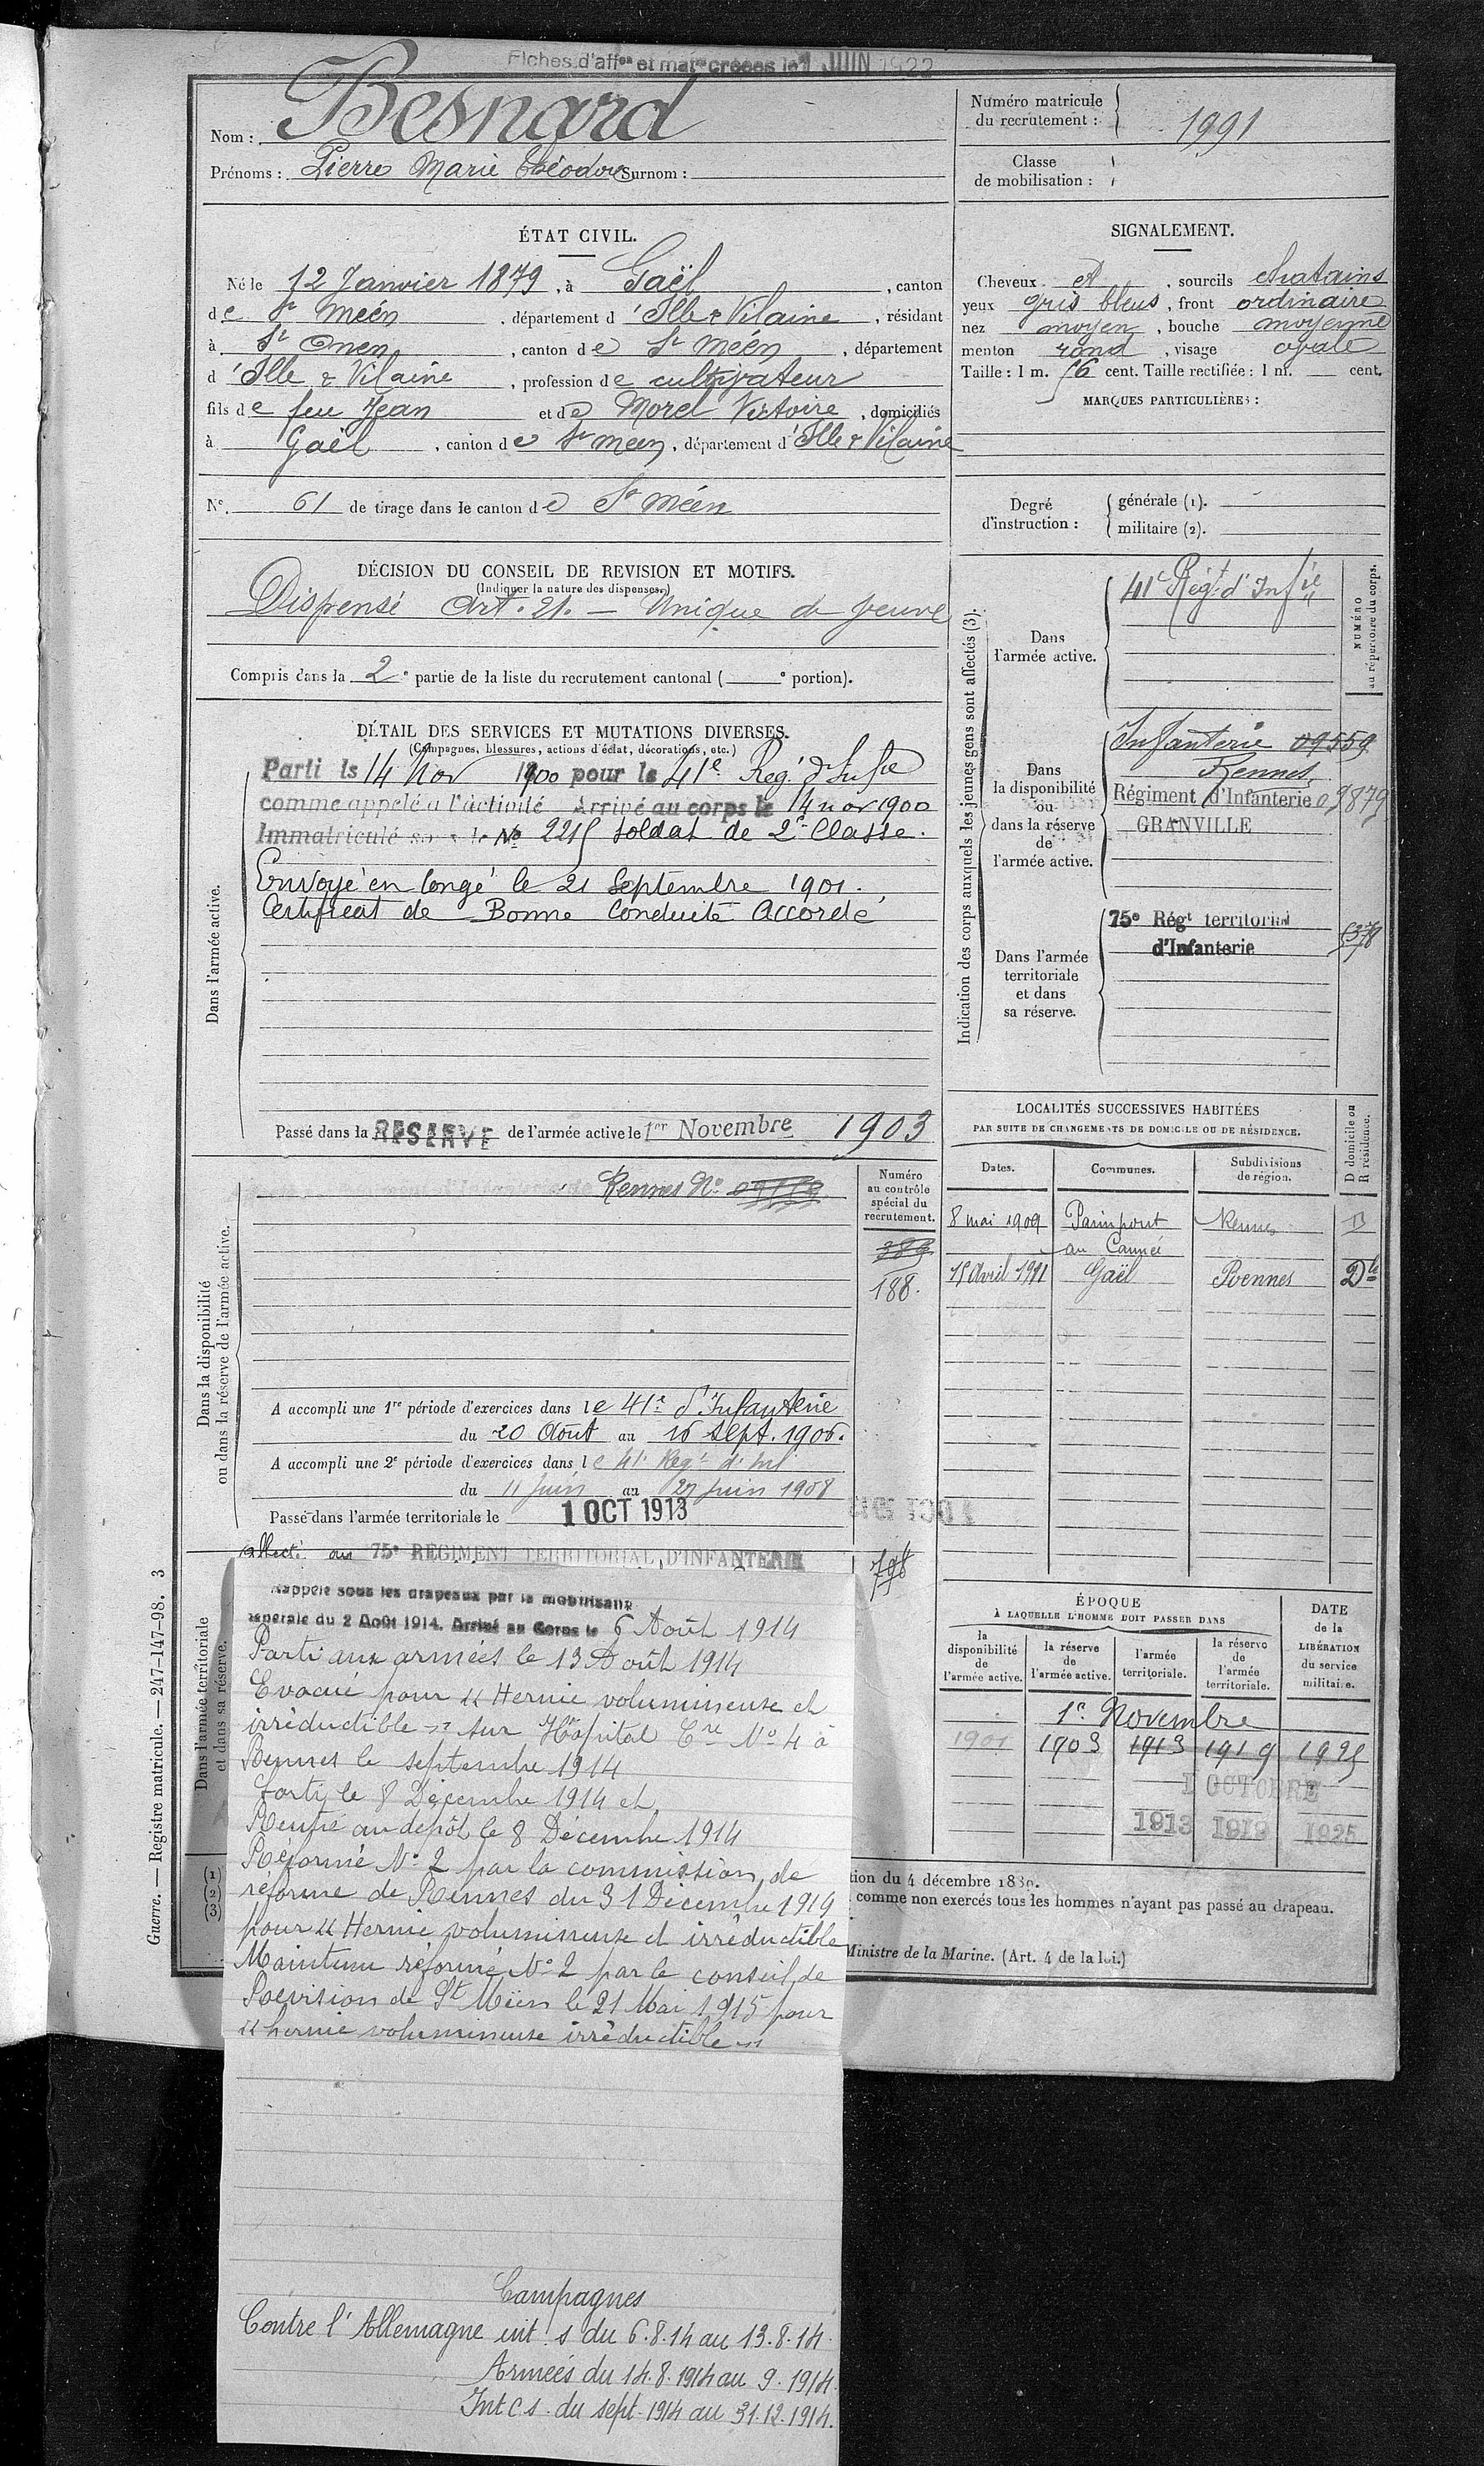 Fiches d'aff<sup>on</sup> et mat<sup>les</sup> créées le 1 JUIN 1922
Nom : Besnard
Prénoms : Pierre Marie Théodore Surnom :
Numéro matricule du recrutement : 1991
Classe de mobilisation :
ÉTAT CIVIL.
Né le 12 Janvier 1879, à Gaël, canton
de St Méen, département d'Ille & Vilaine, résidant
à St Onen, canton de St Méen, département
d'Ille & Vilaine, profession de cultivateur
fils de feu Jean et de Morel Victoire, domiciliés
à Gaël, canton de St Meen, département d'Ille & Vilaine
N°. 61 de tirage dans le canton de St Méen
SIGNALEMENT.
Cheveux et, sourcils chatains
yeux gris bleus, front ordinaire
nez moyen, bouche moyenne
menton rond, visage ovale
Taille : 1 m. 56 cent. Taille rectifiée : 1 m. cent.
MARQUES PARTICULIÈRES :
Degré d'instruction : générale (1).
militaire (2).
DÉCISION DU CONSEIL DE REVISION ET MOTIFS.
(Indiquer la nature des dispenses.)
Dispensé Art. 21. — Unique de veuve
Compris dans la 2e partie de la liste du recrutement cantonal ( e portion).
DÉTAIL DES SERVICES ET MUTATIONS DIVERSES.
(Campagnes, blessures, actions d'éclat, décorations, etc.)
Dans l'armée active.
Parti le 14 Nov 1900 pour le 41e Reg. d'Infie
comme appelé à l'activité Arrivé au corps le 14 nov 1900
Immatriculé sous le No 2215 soldat de 2e Classe.
Envoyé en congé le 21 Septembre 1901.
Certificat de Bonne Conduite Accordé
Passé dans la RESERVE de l'armée active le 1er Novembre 1903
Indication des corps auxquels les jeunes gens sont affectés (3).
NUMÉRO au répertoire du corps.
Dans l'armée active.
41e Régt d'Infie
Dans la disponibilité ou dans la réserve de l'armée active.
Infanterie 09559
Rennes
Régiment d'Infanterie 09879
GRANVILLE
Dans l'armée territoriale et dans sa réserve.
75e Régt territorial
d'Infanterie
Dans la disponibilité ou dans la réserve de l'armée active.
Rennes No
Numéro au contrôle spécial du recrutement.
389
188.
A accompli une 1re période d'exercices dans le 41e d'Infanterie
du 20 Août au 16 Sept. 1906.
A accompli une 2e période d'exercices dans le 41e Regt d'Inf
du 11 Juin au 27 Juin 1908
Passé dans l'armée territoriale le 1 OCT 1913
LOCALITÉS SUCCESSIVES HABITÉES
PAR SUITE DE CHANGEMENTS DE DOMICILE OU DE RÉSIDENCE.
D domicile ou R résidence.
Dates. Communes. Subdivisions de région.
8 mai 1909 Paimpont Rennes D
au Cannée
15 Avril 1911 Gaël Rennes Dle
Dans l'armée territoriale et dans sa réserve.
affecté au 75e REGIMENT TERRITORIAL D'INFANTERIE 798
Rappelé sous les drapeaux par la mobilisation
générale du 2 Août 1914. Arrivé au Corps le 6 Août 1914
Parti aux armées le 13 Août 1914
Evacué pour « Hernie volumineuse et
irréductible » sur Hôpital Cre No 4 à
Rennes le septembre 1914
Sorti le 8 Décembre 1914 et
Rentré au dépôt le 8 Décembre 1914
Réformé No 2 par la commission de
réforme de Rennes du 31 Décembre 1914
pour « Hernie volumineuse et irréductible
Maintenu réformé No 2 par le conseil de
Révision de St Méen le 21 Mai 1915 pour
« hernie volumineuse irréductible »
Campagnes
Contre l'Allemagne int. s du 6.8.14 au 13.8.14.
Armées du 14.8.1914 au 9.1914.
Int C s. du sept. 1914 au 31.12.1914.
ÉPOQUE
À LAQUELLE L'HOMME DOIT PASSER DANS
la disponibilité de l'armée active. la réserve de l'armée active. l'armée territoriale. la réserve de l'armée territoriale.
DATE de la LIBÉRATION du service militaire.
1er Novembre
1901 1903 1913 1919 1925
1 OCTOBRE
1913 1919 1925
(1)
(2)
(3)
tion du 4 décembre 1889.
comme non exercés tous les hommes n'ayant pas passé au drapeau.
Ministre de la Marine. (Art. 4 de la loi.)
Guerre. — Registre matricule. — 247-147-98. 3